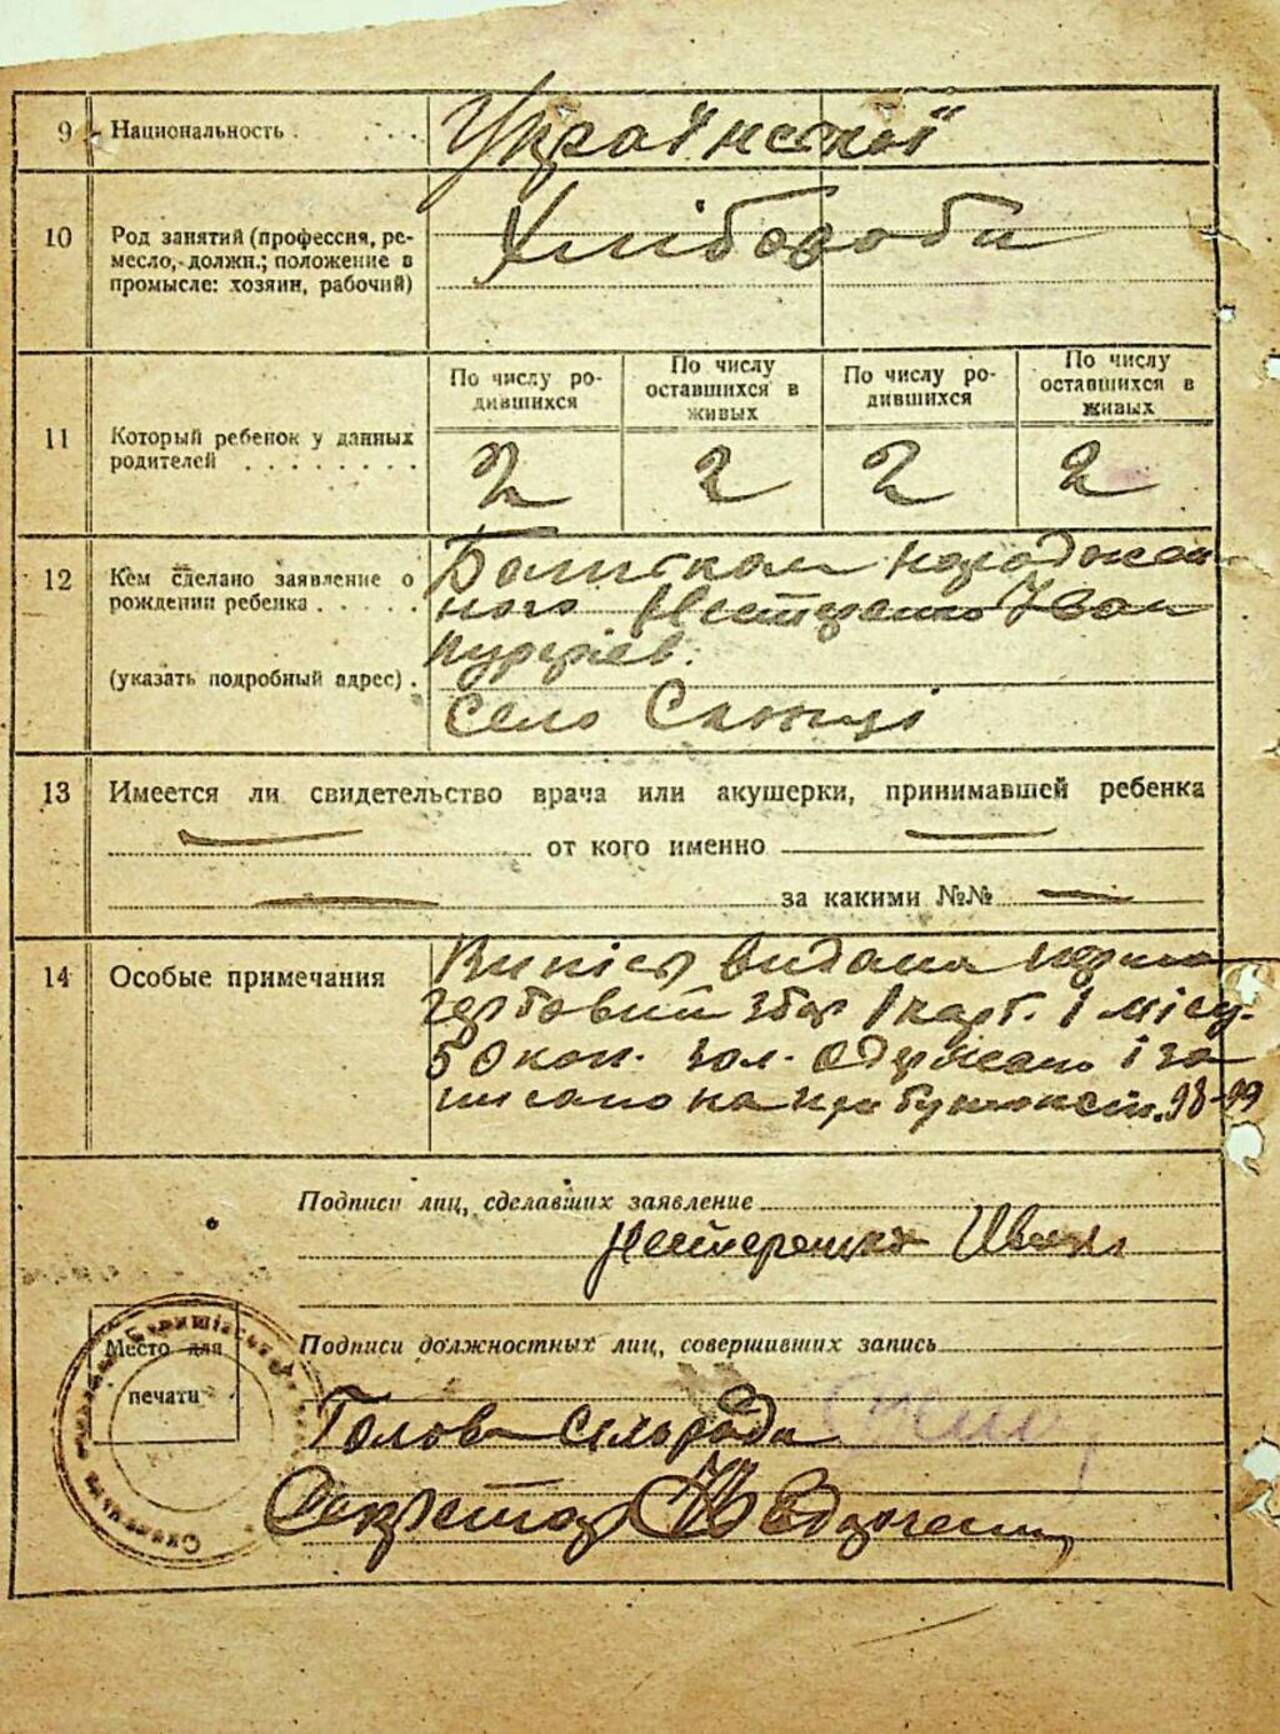 9 Национальность . . . . .
Української
10 Род занятий (профессия, ре-
месло, должн.; положение в
промысле: хозяин, рабочий)
Хлібороби
11 Который ребенок у данных
родителей . . . . . . . .
По числу ро-
дившихся
По числу
оставшихся в
живых
По числу ро-
дившихся
По числу
оставшихся в
живых
2 2 2 2
12 Кем сделано заявление о
рождении ребенка . . . . .
(указать подробный адрес) .
Батьком народжен
ного Нестеренко Іван
село
13 Имеется ли свидетельство врача или акушерки, принимавшей ребенка
от кого именно
за какими №№
14 Особые примечания
видана
гербовий збір 1 карб. 1 місц.
50 коп. зол. одержано і за
писано на
98-99
Подписи лиц, сделавших заявление
Нестеренко Иван
Место для
печати
Подписи должностных лиц, совершивших запись
Голова сельради
Секретар